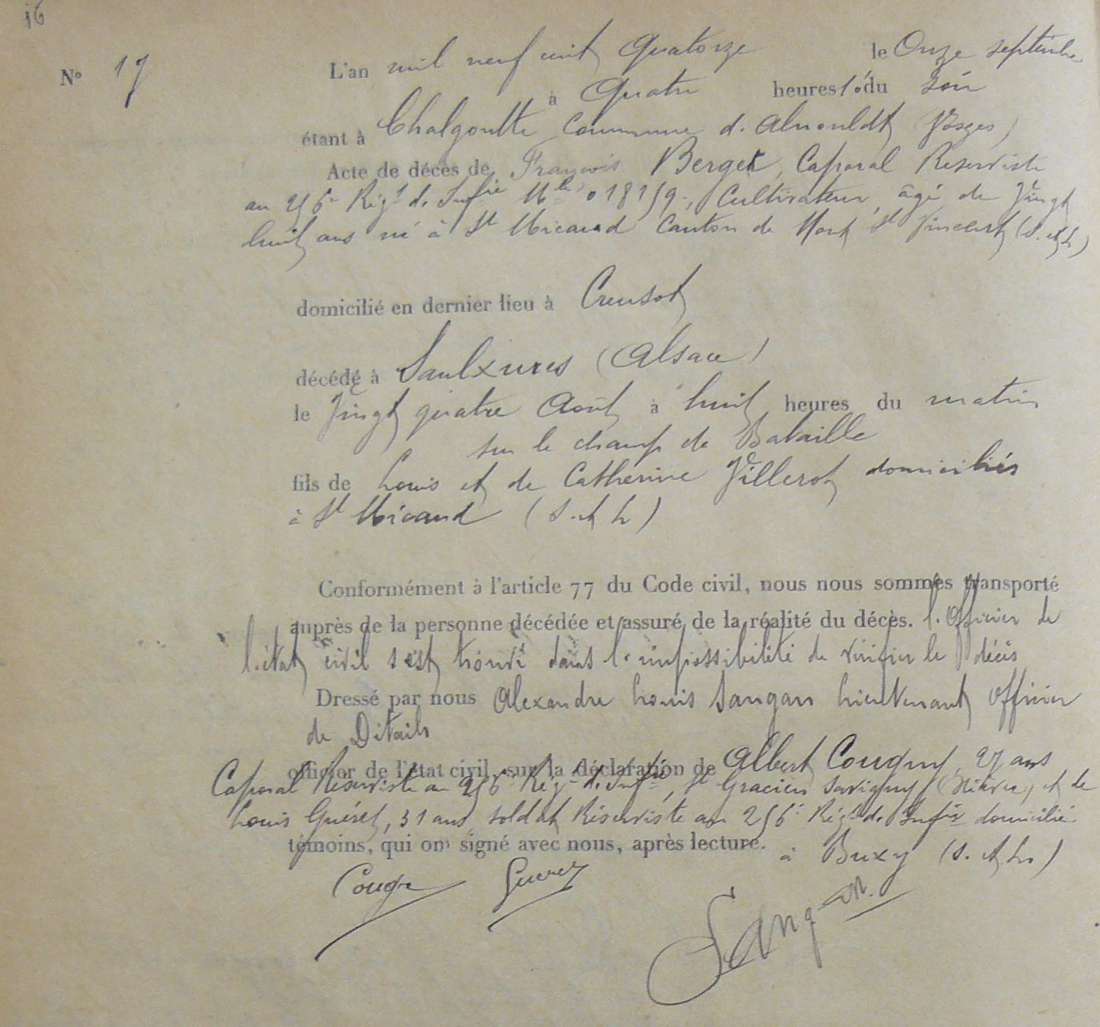 16
N° 17
L'an mil neuf cent Quatorze le Onze septembre
à Quatre heures 10 du soir
étant à Chalgoutte Commune d. (Vosges)
Acte de décès de François Berget, Caporal Reserviste
au 256e Régt d. Infie Mle 018159, Cultivateur, âgé de Vingt
huit ans né à St Micaud Canton de Mont St Vincent (S. et L)
domicilié en dernier lieu à Creusot
décédé à Saulxures (Alsace)
le Vingt quatre Août à huit heures du matin
sur le champ de Bataille
fils de Louis et de Catherine Villerot domiciliés
à St Micaud (S. et L)
Conformément à l'article 77 du Code civil, nous nous sommes transporté
auprès de la personne décédée et assuré de la réalité du décès. l'Officier de
l'état civil s'est trouvé dans l'impossibilité de vérifier le décès
Dressé par nous Alexandre Louis Sangan Lieutenant Officier
de Détails
officier de l'état civil, sur la déclaration de Albert Cougny, 27 ans
Caporal Réserviste au 256e Régt d. Infie, St Gracien Savigny (Nièvre) et de
Louis Guéret, 31 ans soldat Réserviste au 256e Régt d. Infie domicilié
témoins, qui ont signé avec nous, après lecture. à Buxy (S. et L)
Cougny Gueret
Sangan